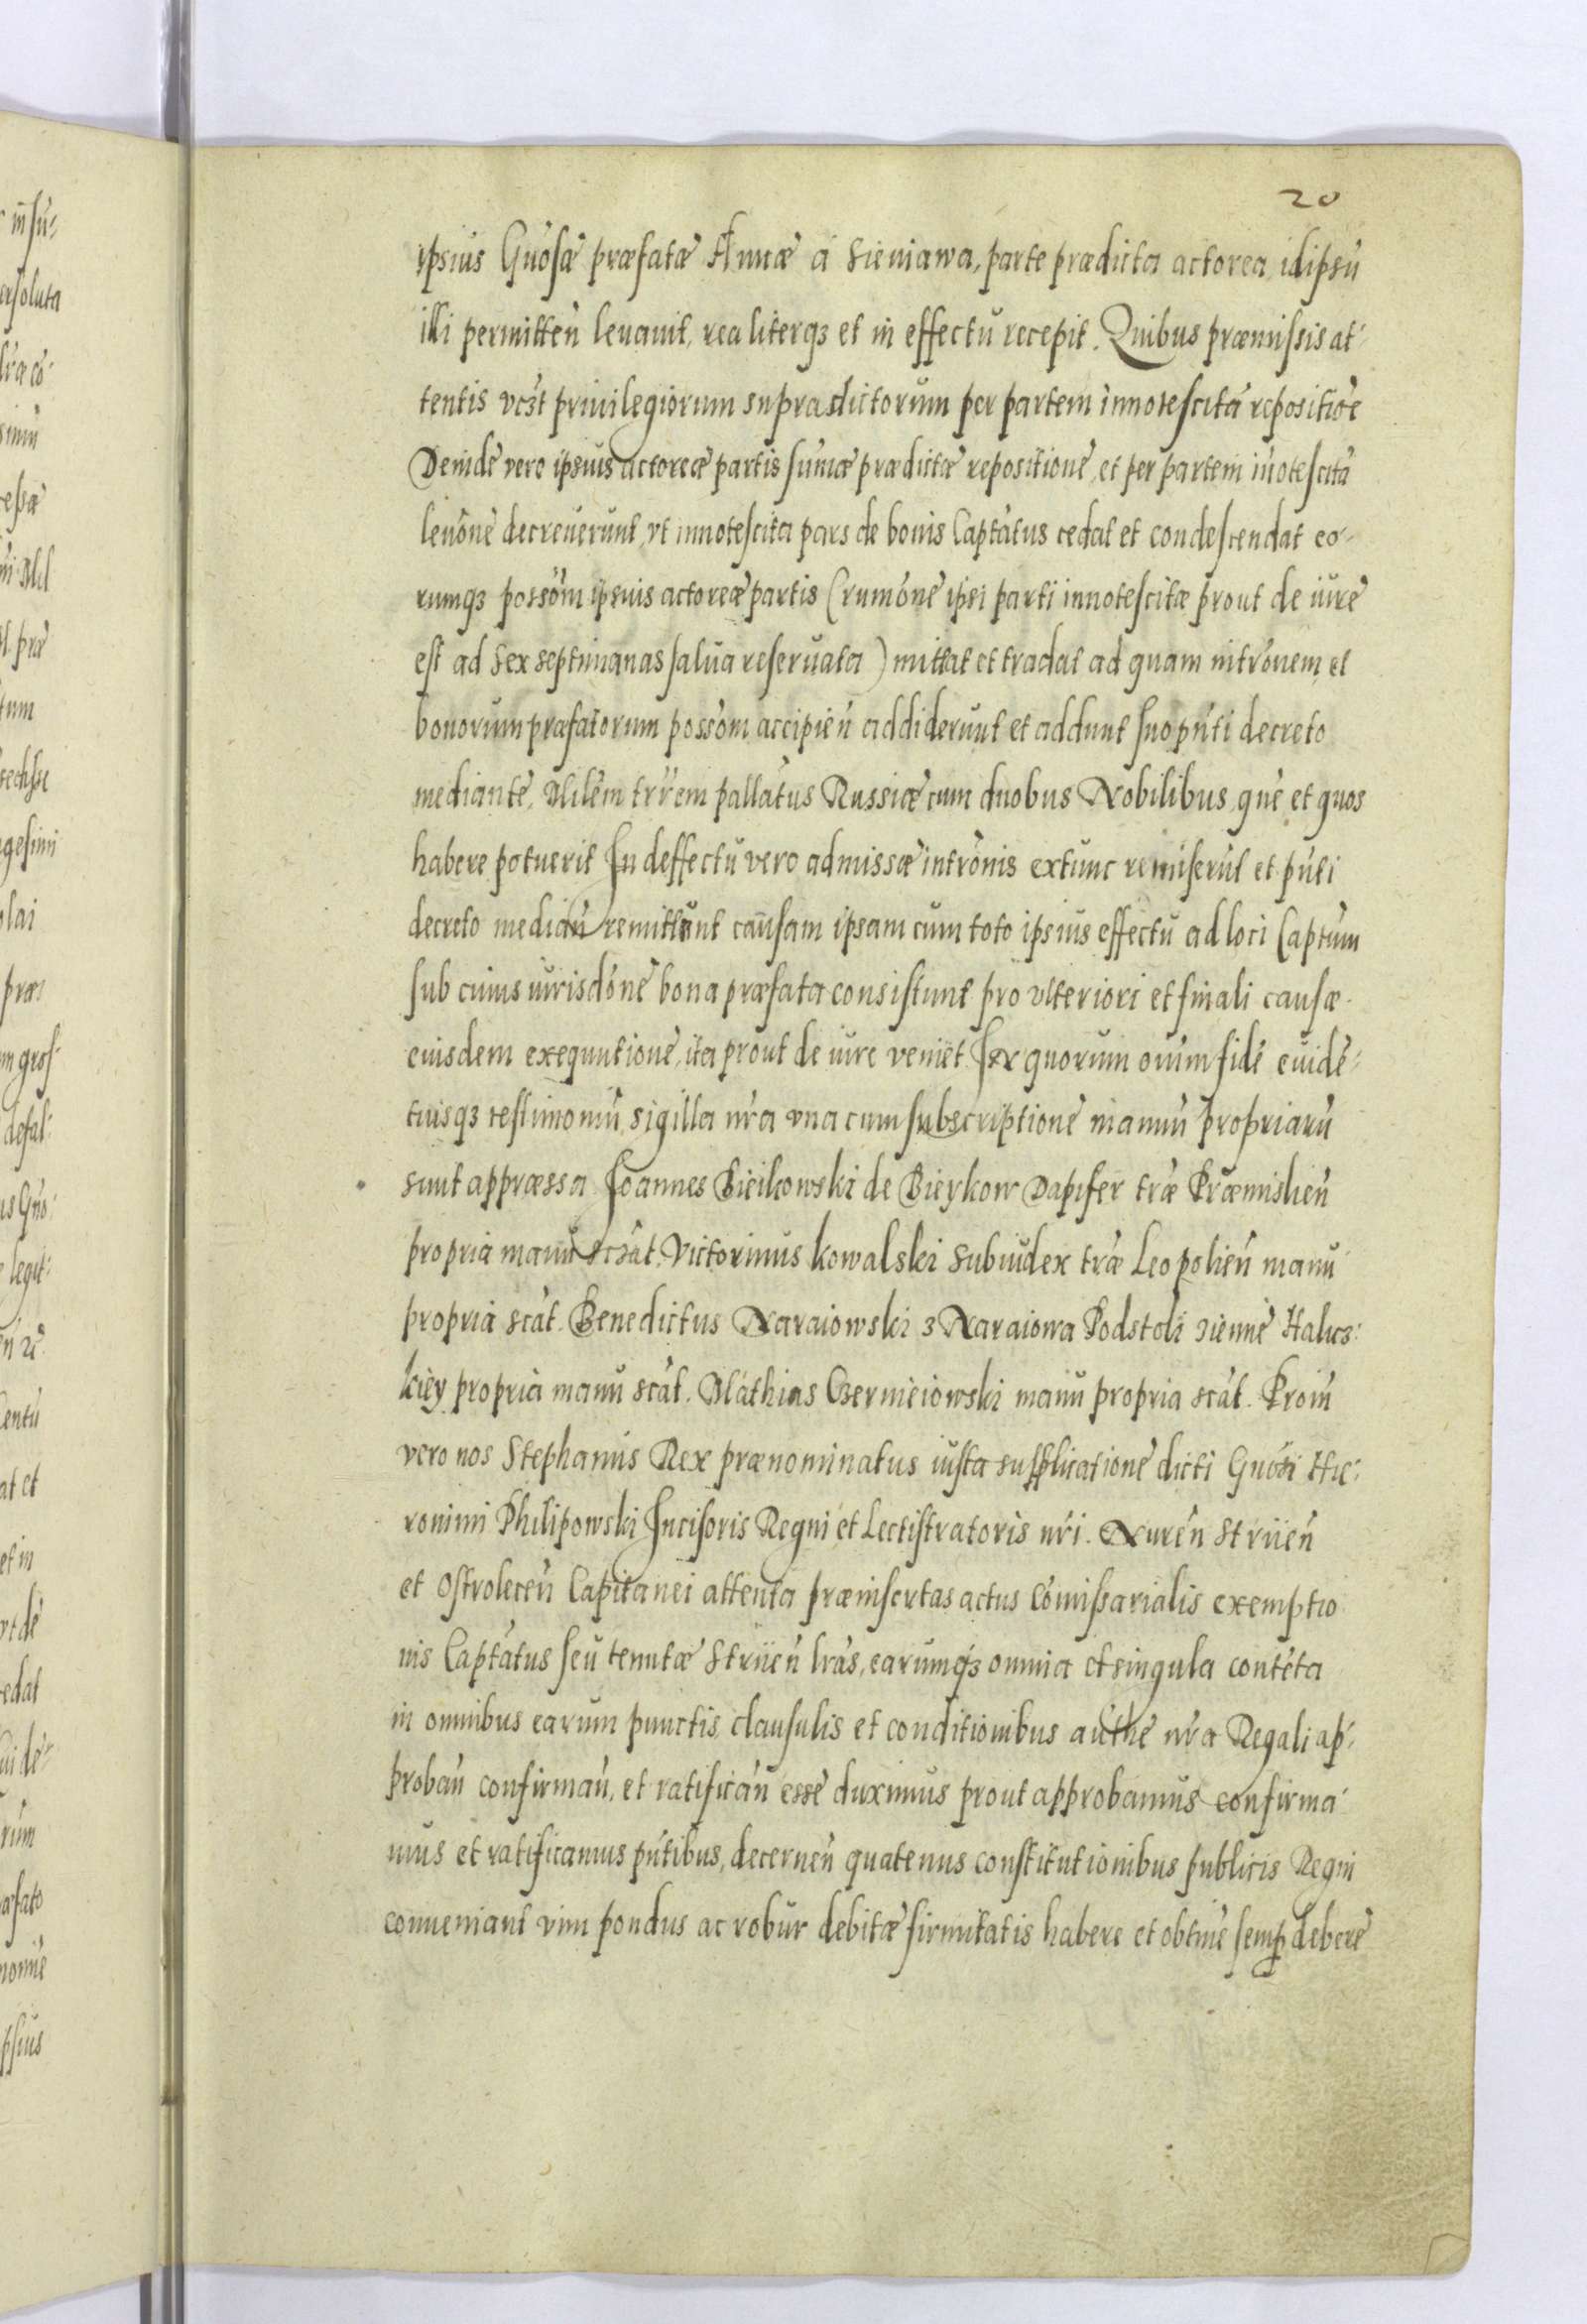 20
ipsius Gnosæ præfatæ Annæ a Sieniawa, parte prædicta actorea, idipsu
illi permitten levavit, realiterqз et in effectu recepit. Quibus præmissis at-
tentis vcзt privilegiorum supradictorum per partem innotescitã repositioe
Deinde vero ipsius actoreæ partis sumæ prædictæ repositione, et per partem inotescitã
levone decreverunt, vt innotescita pars de bonis Captatus cedat et condescendat eo-
rumqз possom ipsius actoreæ partis (rumone ipsi parti innotescitæ prout de iure
est ad sex septimanas salua reservata) mittat et tradat ad quam intronem et
bonorum præfatorum possom accipien addiderunt et addunt suo pnti decreto
mediante, Milem trrem pallatus Russiæ cum duobus Nobilibus, que et quos
habere potuerit In deffectu vero admissæ intronis extunc remiserut et pnti
decreto median remittunt causam ipsam cum toto ipsius effectu ad loci Captum
sub cuius iurisdone bona præfata consistunt pro vlteriori et finali causæ
eiusdem exequutione, ita prout de iure veniet. In quorum oium fide evide-
tiusqз testimoniu, sigilla nra vna cum subscriptione manuu propriaru
sunt appræssa Joannes Bieikowski de Bieykow Dapifer træ Præmislien
propria manu scзat. Victorinus Kowalski Subiudex træ Leopolien manu
propria scat. Benedictus Naraiowski з Naraiowa Podstoli зiemie Halicз-
kiey propria manu scat. Mathias Cзerniejowski manu propria scat. Proin
vero nos Stephanus Rex prænominatus iusta supplicatione dicti Gnosi Hie-
ronimi Philipowski Incisoris Regni et Lectistratoris nri. Nuren Striien
et Ostrolecen Capitanei attenta præinsertas actus Comissarialis exemptio
nis Captatus seu tenutæ Striien lras, earumqз omnia et singula conteta
in omnibus earum punctis, clausulis et conditionibus authe nra Regali ap-
proban confirman, et ratifican esse duximus prout approbamus confirma
mus et ratificamus pntibus, decernen quatenus constitutionibus publicis Regni
conveniant vim pondus ac robur debitæ firmitatis habere et obtine semp debere